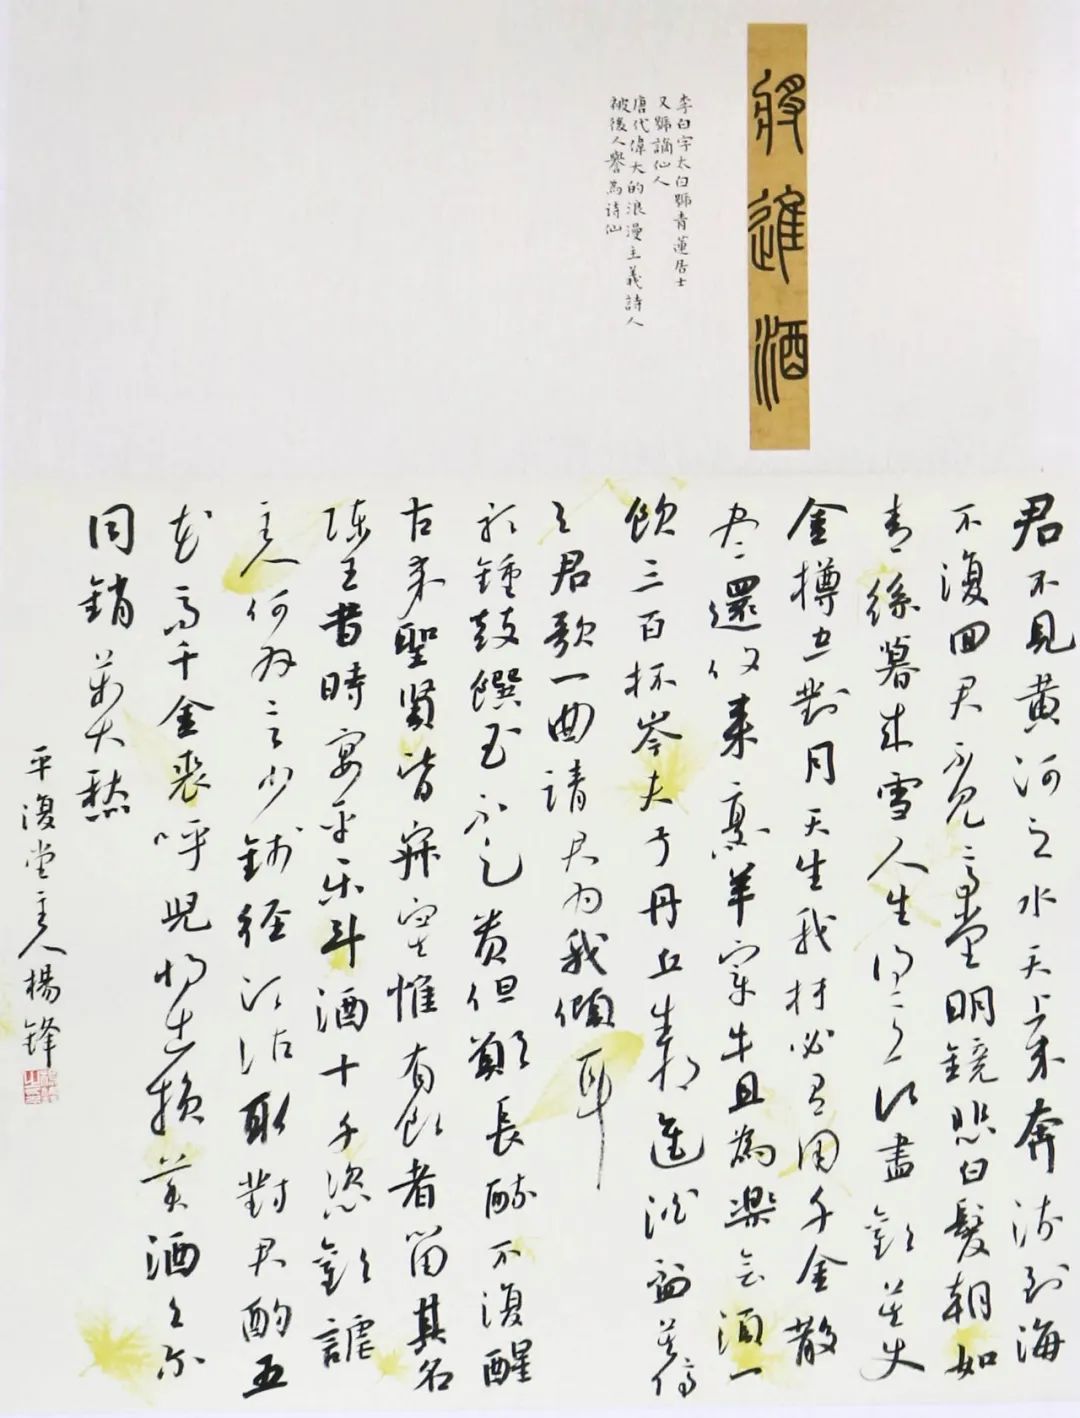 將進酒
李白字太白號青蓮居士
又號謫仙人
唐代偉大的浪漫主義詩人
被後人譽為诗仙
君不見黄河之水天上来奔流到海
不復回君不見高堂明鏡悲白髮朝如
青絲暮成雪人生得意須盡歡莫使
金樽空對月天生我材必有用千金散
盡還復來烹羊宰牛且為樂會須一
飲三百杯岑夫子丹丘生将進酒盃莫停
与君歌一曲請君为我傾耳
聼鍾鼓饌玉不足贵但願長醉不復醒
古来聖賢皆寂寞惟有飲者留其名
陳王昔時宴平樂斗酒十千恣歡謔
主人何为言少錢径須沽取對君酌五
花馬千金裘呼兒将出换美酒与尔
同銷萬古愁
平復堂主人楊鋒